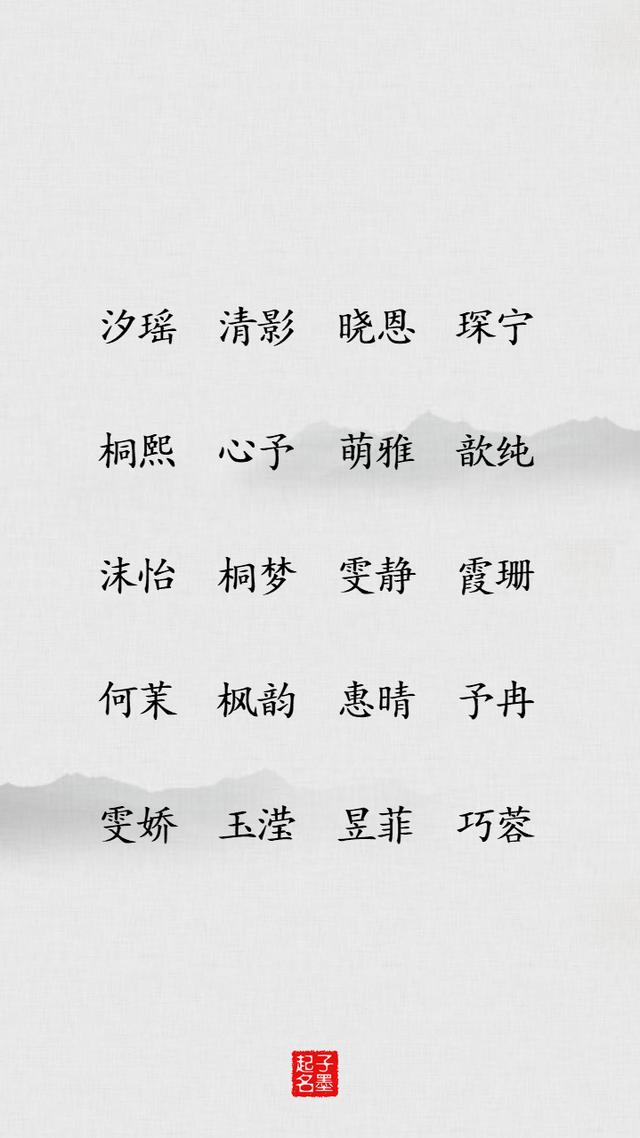 汐瑶 清影 晓恩 琛宁
桐熙 心予 萌雅 歆纯
沫怡 桐梦 雯静 霞珊
何茉 枫韵 惠晴 予冉
雯娇 玉滢 昱菲 巧蓉
子墨
起名